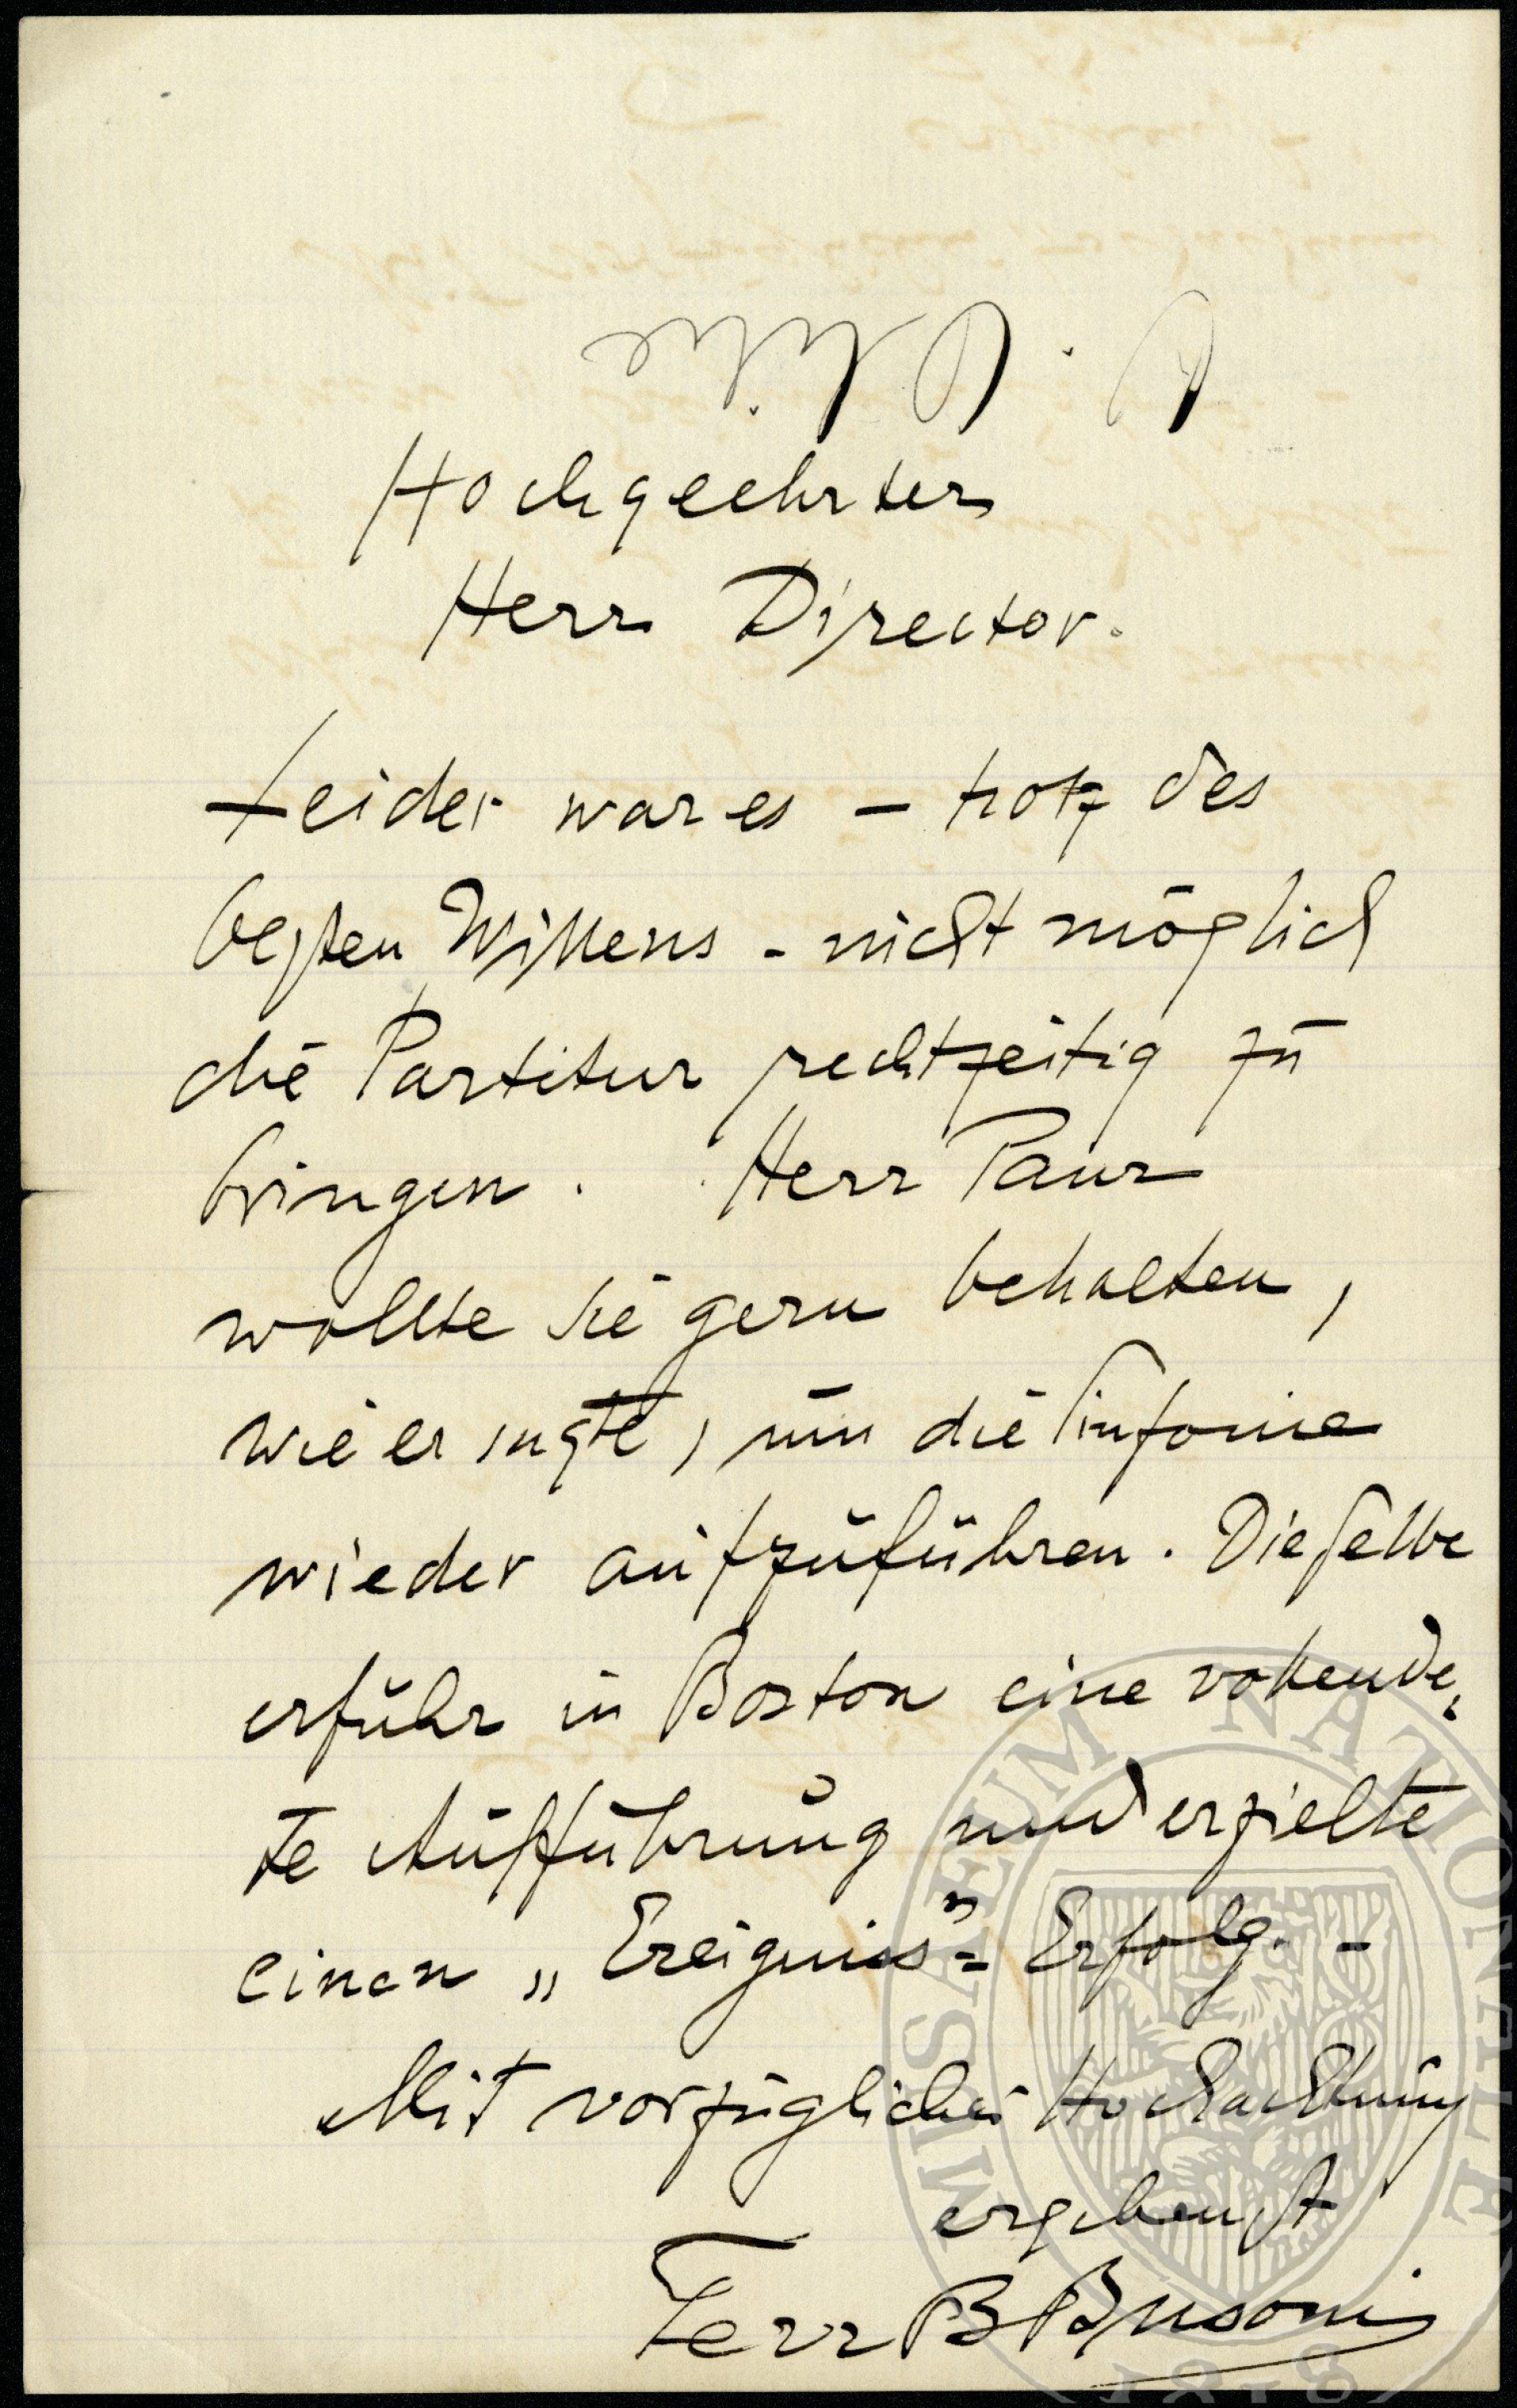 Hochgeehrter
Herr Director.
Leider war es – trotz des
besten Willens – nicht möglich
die Partitur rechtzeitig zu
bringen. Herr Paur
wollte sie gern behalten,
wie er sagte, um die Sinfonie
wieder aufzuführen. Dieselbe
erfuhr in Boston eine vollende-
te Aufführung und erzielte
einen „Ereigniss"= Erfolg. –
Mit vorzüglicher Hochachtung
ergebenst
Ferr B Busoni
MUSAEUM NATIONALE
1818